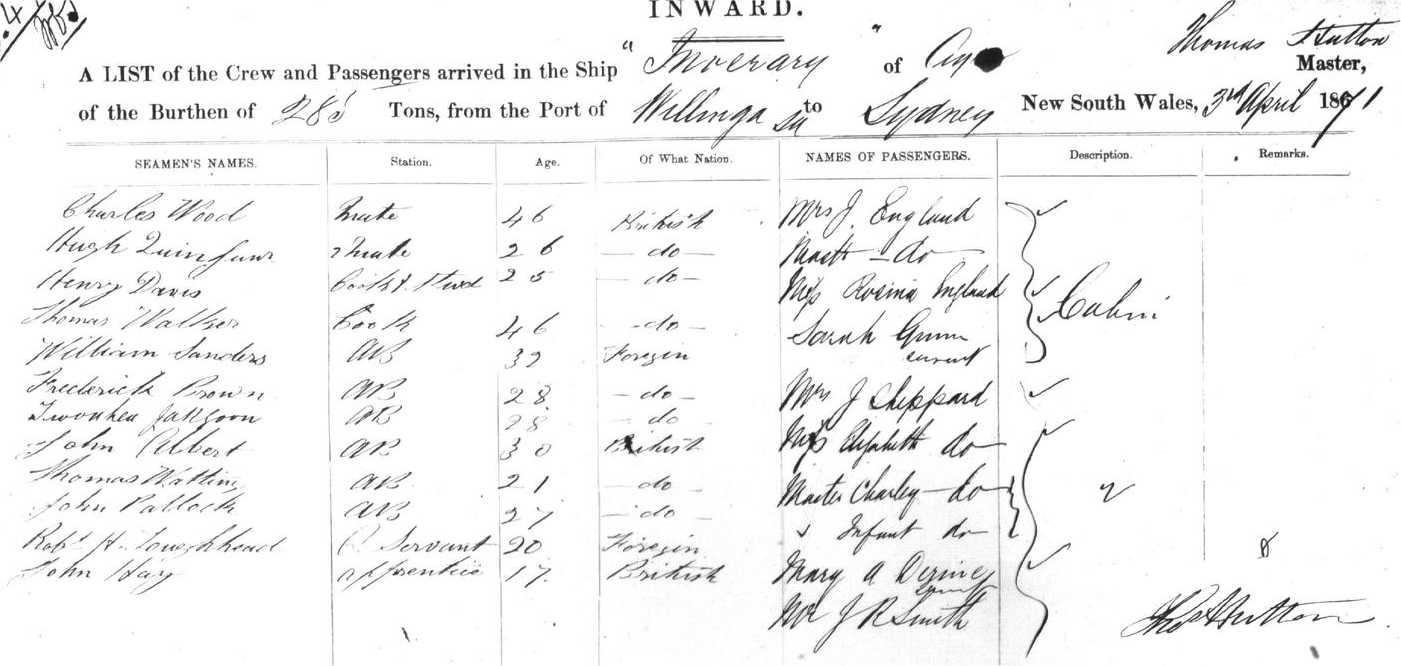 INWARD.
Thomas Hutton
A LIST of the Crew and Passengers arrived in the Ship "Inverary" of Master,
of the Burthen of 285 Tons, from the Port of Willinga to Sydney New South Wales, 3rd April 1871
SEAMEN'S NAMES. Station. Age. Of What Nation. NAMES OF PASSENGERS. Description. Remarks.
Charles Wood Mate 46 British Mrs J. England
Hugh 2 Mate 26 - do - Mastr - do
Henry Davis Cook & Stwd 25 - do - Miss Rosina England Cabin
Thomas Walker Cook 46 - do - Sarah Gunn
William Sanders AB 32 Foregin servant
Frederick Brown AB 28 - do - Mrs J Sheppard
AB 28 - do
John Albert AB 30 British Miss Elizabeth do
Thomas Watling AB 21 - do - Master Charley - do
John Pallock AB 27 - do - & Infant do
Robt H. Loughhead Servant 20 Foregin
John Hay apprentice 17 British Mary A
Mr J R Smith
Thos Hutton